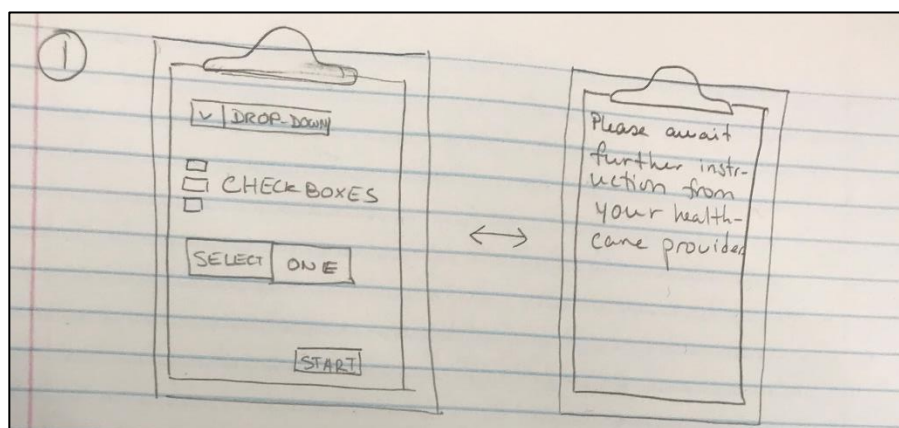 1
DROP-DOWN
CHECKBOXES
SELECT ONE
START
Please await
further instr-
uction from
your health-
care provider